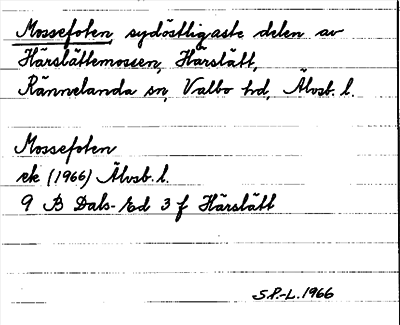 Mossefoten sydöstligaste delen av
Härslättemossen, Härslätt,
Rännelanda sn, Valbo hd, Älvsb. l.
Mossefoten
ek (1966) Älvsb. l.
9 B Dals-Ed 3 f Härslätt
S.P.-L. 1966